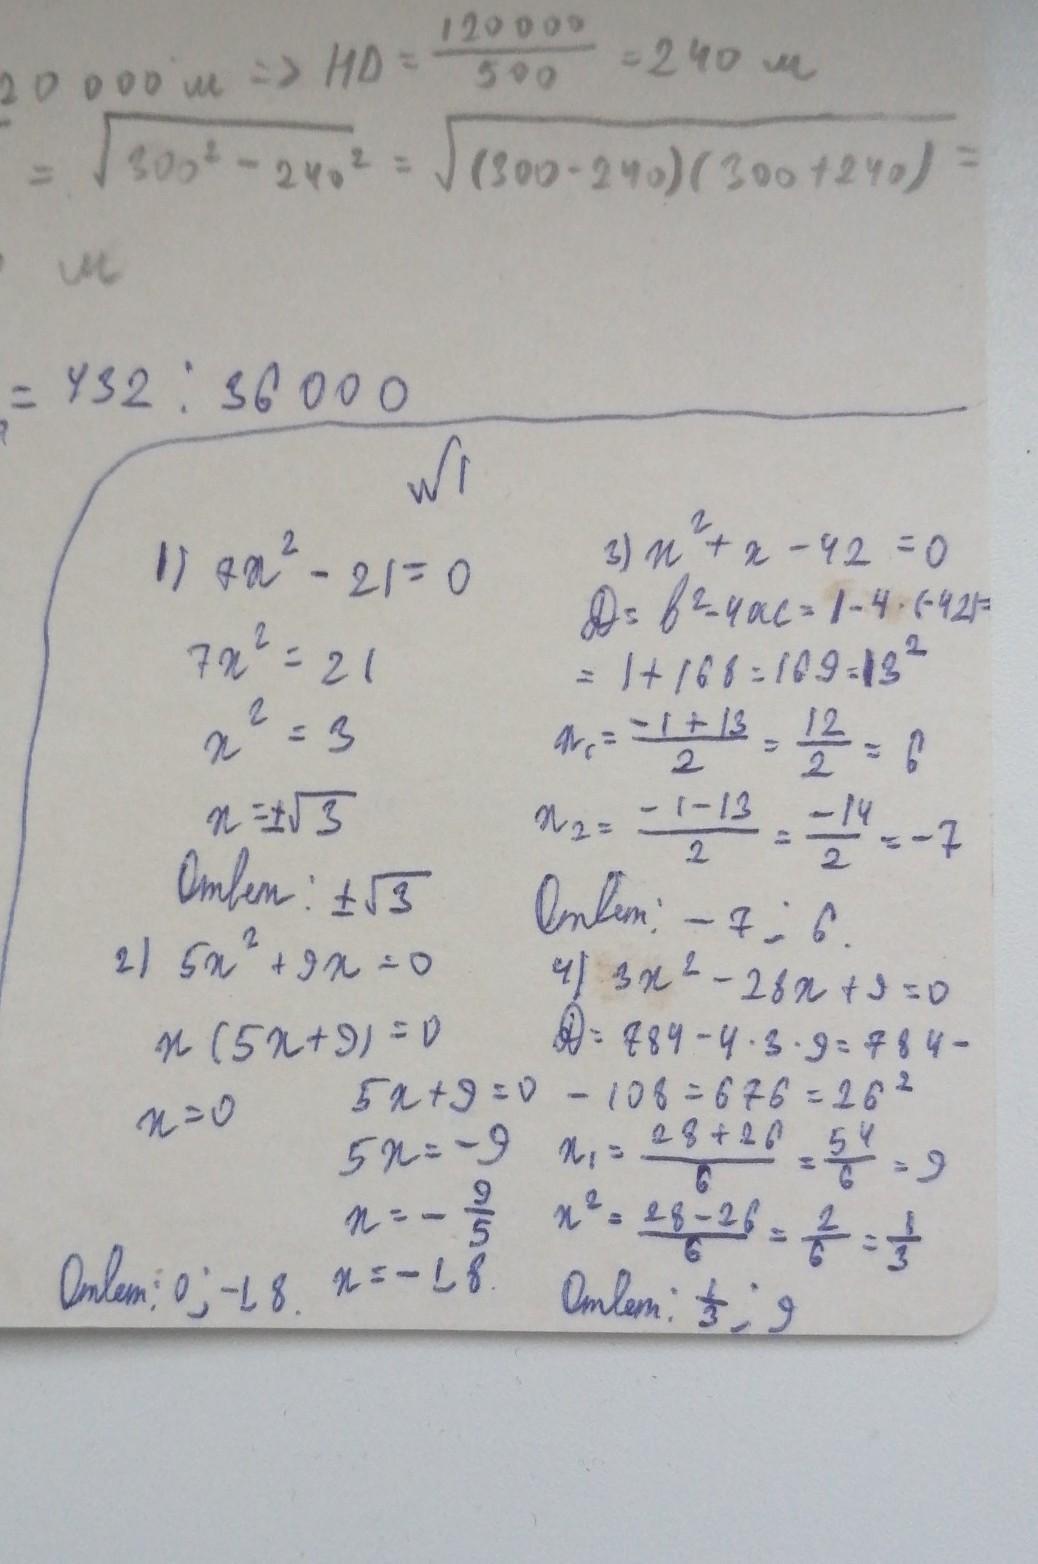 20 000 м => HD = 120000/500 = 240 м
= √(300² - 240²) = √((300-240)(300+240)) =
м
= 432 : 36 000
№1
1) 7x² - 21 = 0
7x² = 21
x² = 3
x = ±√3
Ответ: ±√3
2) 5x² + 9x = 0
x (5x+9) = 0
x = 0
5x+9 = 0
5x = -9
x = - 9/5
x = -1,8.
Ответ: 0; -1,8.
3) x² + x - 42 = 0
D = b² - 4ac = 1 - 4 · (-42) =
= 1 + 168 = 169 = 13²
x₁ = (-1+13)/2 = 12/2 = 6
x₂ = (-1-13)/2 = -14/2 = -7
Ответ: -7; 6.
4) 3x² - 28x + 9 = 0
D = 784 - 4·3·9 = 784 -
- 108 = 676 = 26²
x₁ = (28+26)/6 = 54/6 = 9
x² = (28-26)/6 = 2/6 = 1/3
Ответ: 1/3; 9